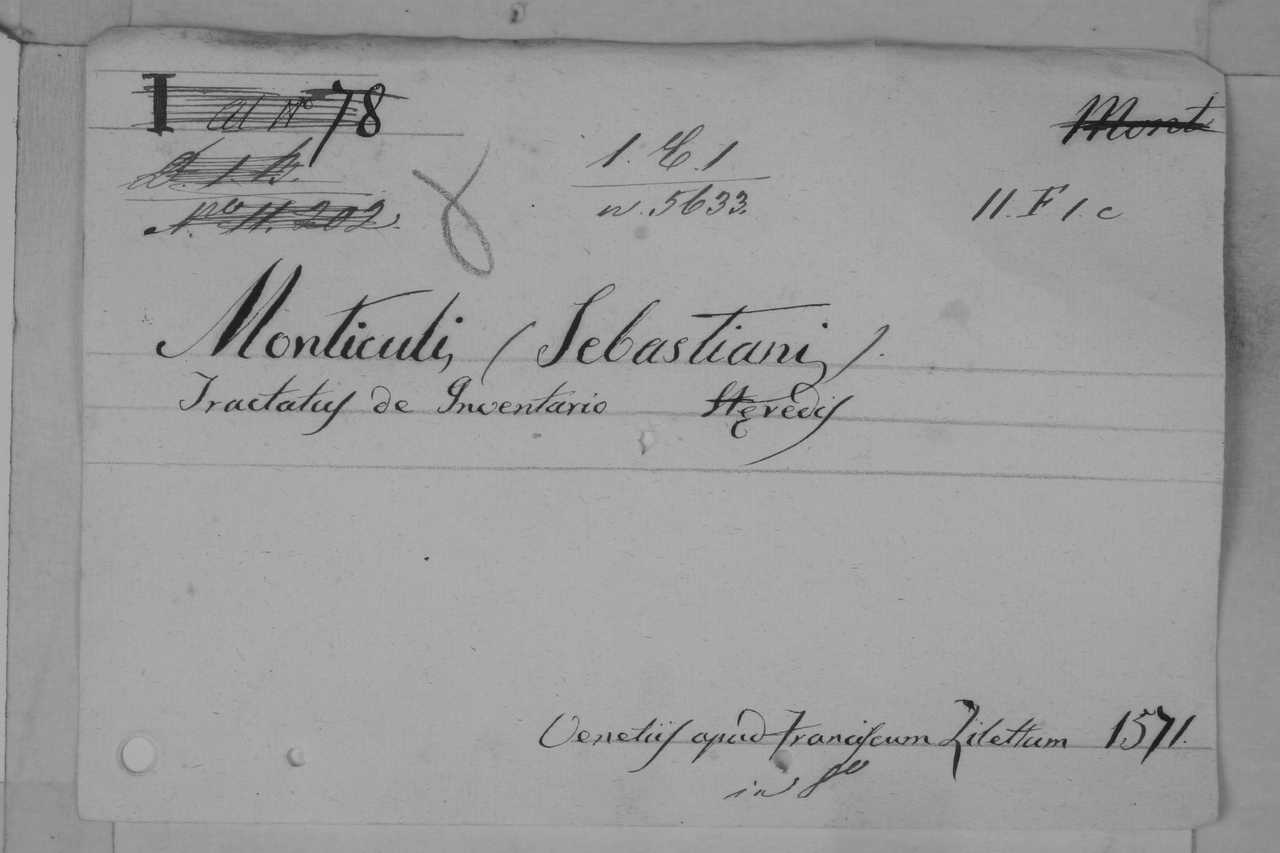 I ad N° 78
Mont
D. 1. B.
1. E. 1
n. 5633.
11. F 1. c
N° 11. 202.
Monticuli, (Sebastiani,).
Tractatus de Inventario Hęredis
Venetiis apud Franciscum Zilettum 1571.
in 8°